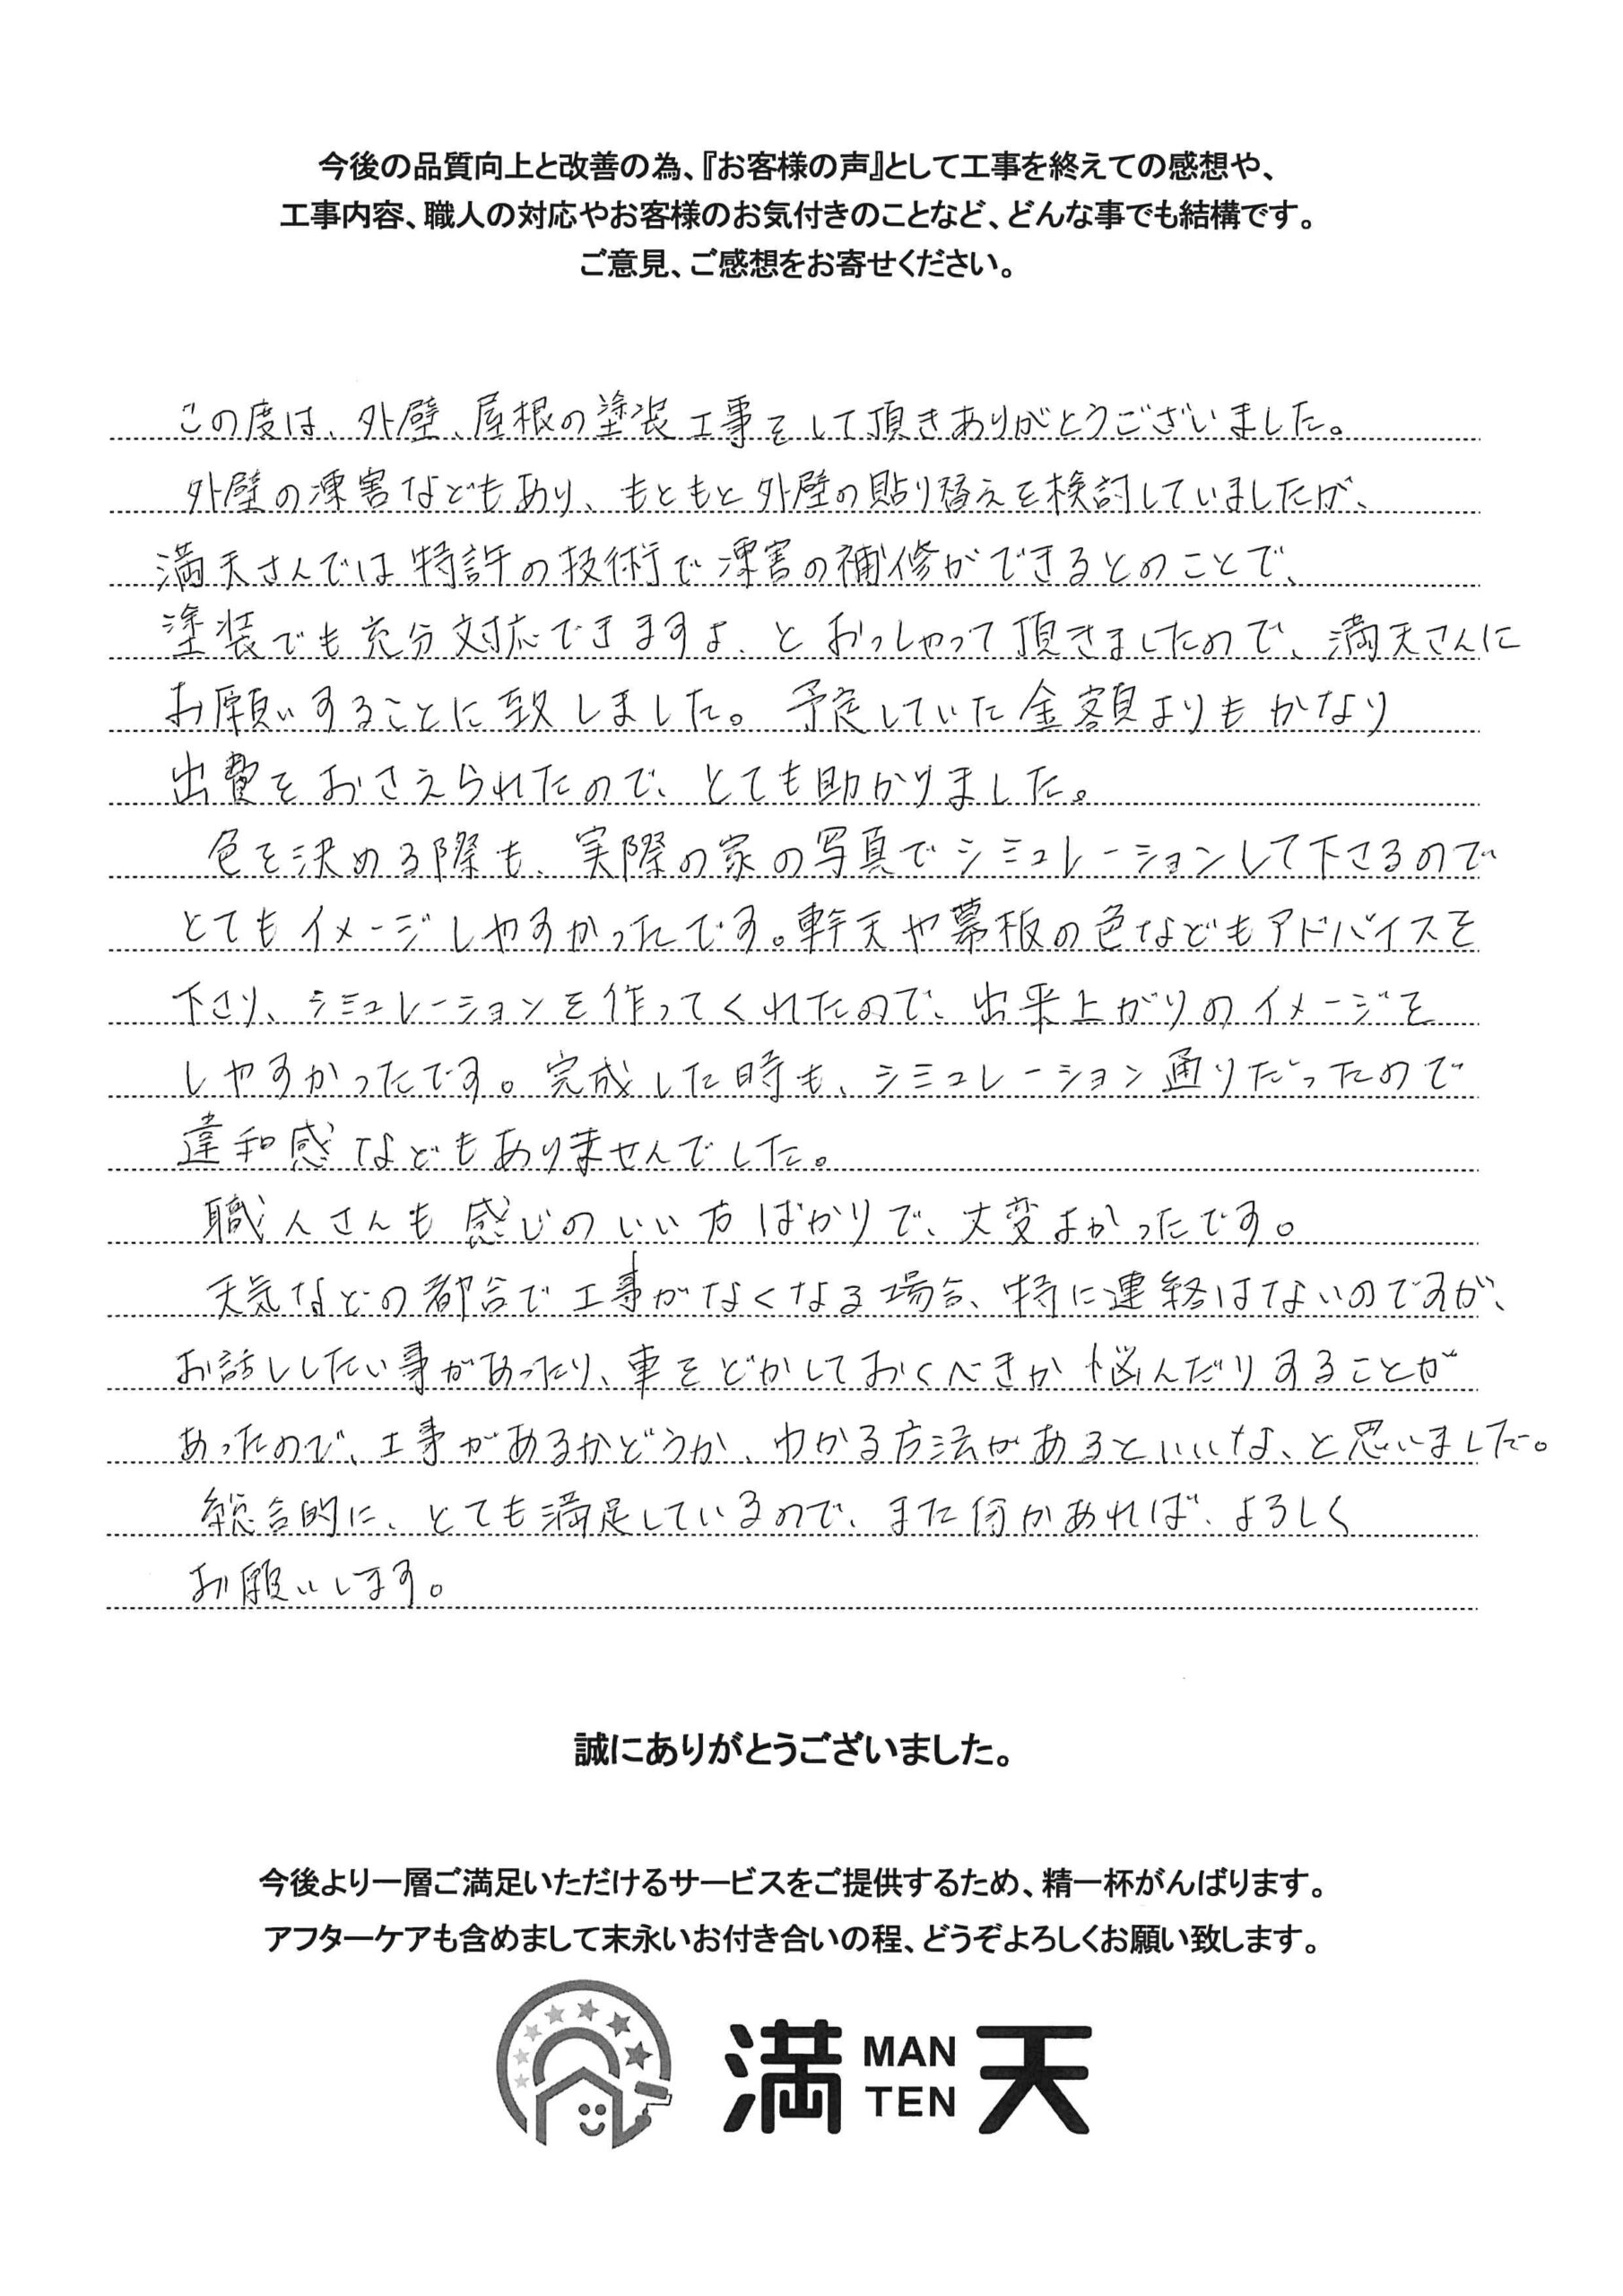 今後の品質向上と改善の為、『お客様の声』として工事を終えての感想や、
工事内容、職人の対応やお客様のお気付きのことなど、どんな事でも結構です。
ご意見、ご感想をお寄せください。
この度は、外壁、屋根の塗装工事をして頂きありがとうございました。
外壁の凍害などもあり、もともと外壁の貼り替えを検討していましたが、
満天さんでは特許の技術で凍害の補修ができるとのことで、
塗装でも充分対応できますよ、とおっしゃって頂きましたので、満天さんに
お願いすることに致しました。予定していた金額よりもかなり
出費をおさえられたので、とても助かりました。
色を決める際も、実際の家の写真でシミュレーションして下さるので
とてもイメージしやすかったです。軒天や幕板の色などもアドバイスを
下さり、シミュレーションを作ってくれたので、出来上がりのイメージを
しやすかったです。完成した時も、シミュレーション通りだったので
違和感などもありませんでした。
職人さんも感じのいい方ばかりで、大変よかったです。
天気などの都合で工事がなくなる場合、特に連絡はないのですが、
お話ししたい事があったり、車をどかしておくべきか悩んだりすることが
あったので、工事があるかどうか、わかる方法があるといいな、と思いました。
総合的に、とても満足しているので、また何かあれば、よろしく
お願いします。
誠にありがとうございました。
今後より一層ご満足いただけるサービスをご提供するため、精一杯がんばります。
アフターケアも含めまして末永いお付き合いの程、どうぞよろしくお願い致します。
満天 MAN TEN